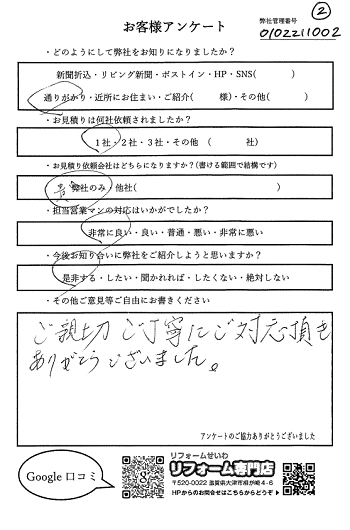 お客様アンケート
弊社管理番号
②
0102211002
・どのようにして弊社をお知りになりましたか？
新聞折込・リビング新聞・ポストイン・HP・SNS( )
通りがかり・近所にお住まい・ご紹介( 様)・その他( )
・お見積りは何社依頼されましたか？
1社・2社・3社・その他 ( 社)
・お見積り依頼会社はどちらになりますか？(書ける範囲で結構です)
弊社のみ・他社( )
・担当営業マンの対応はいかがでしたか？
非常に良い・良い・普通・悪い・非常に悪い
・今後お知り合いに弊社をご紹介しようと思いますか？
是非する・したい・聞かれれば・したくない・絶対しない
・その他ご意見等ご自由にお書きください
ご親切 ご丁寧にご対応頂き
ありがとうございました。
アンケートのご協力ありがとうございました
Google 口コミ
g
リフォームせいわ
リフォーム専門店
〒520-0022 滋賀県大津市柳が崎4-6
HPからのお問合せはこちらからどうぞ▶